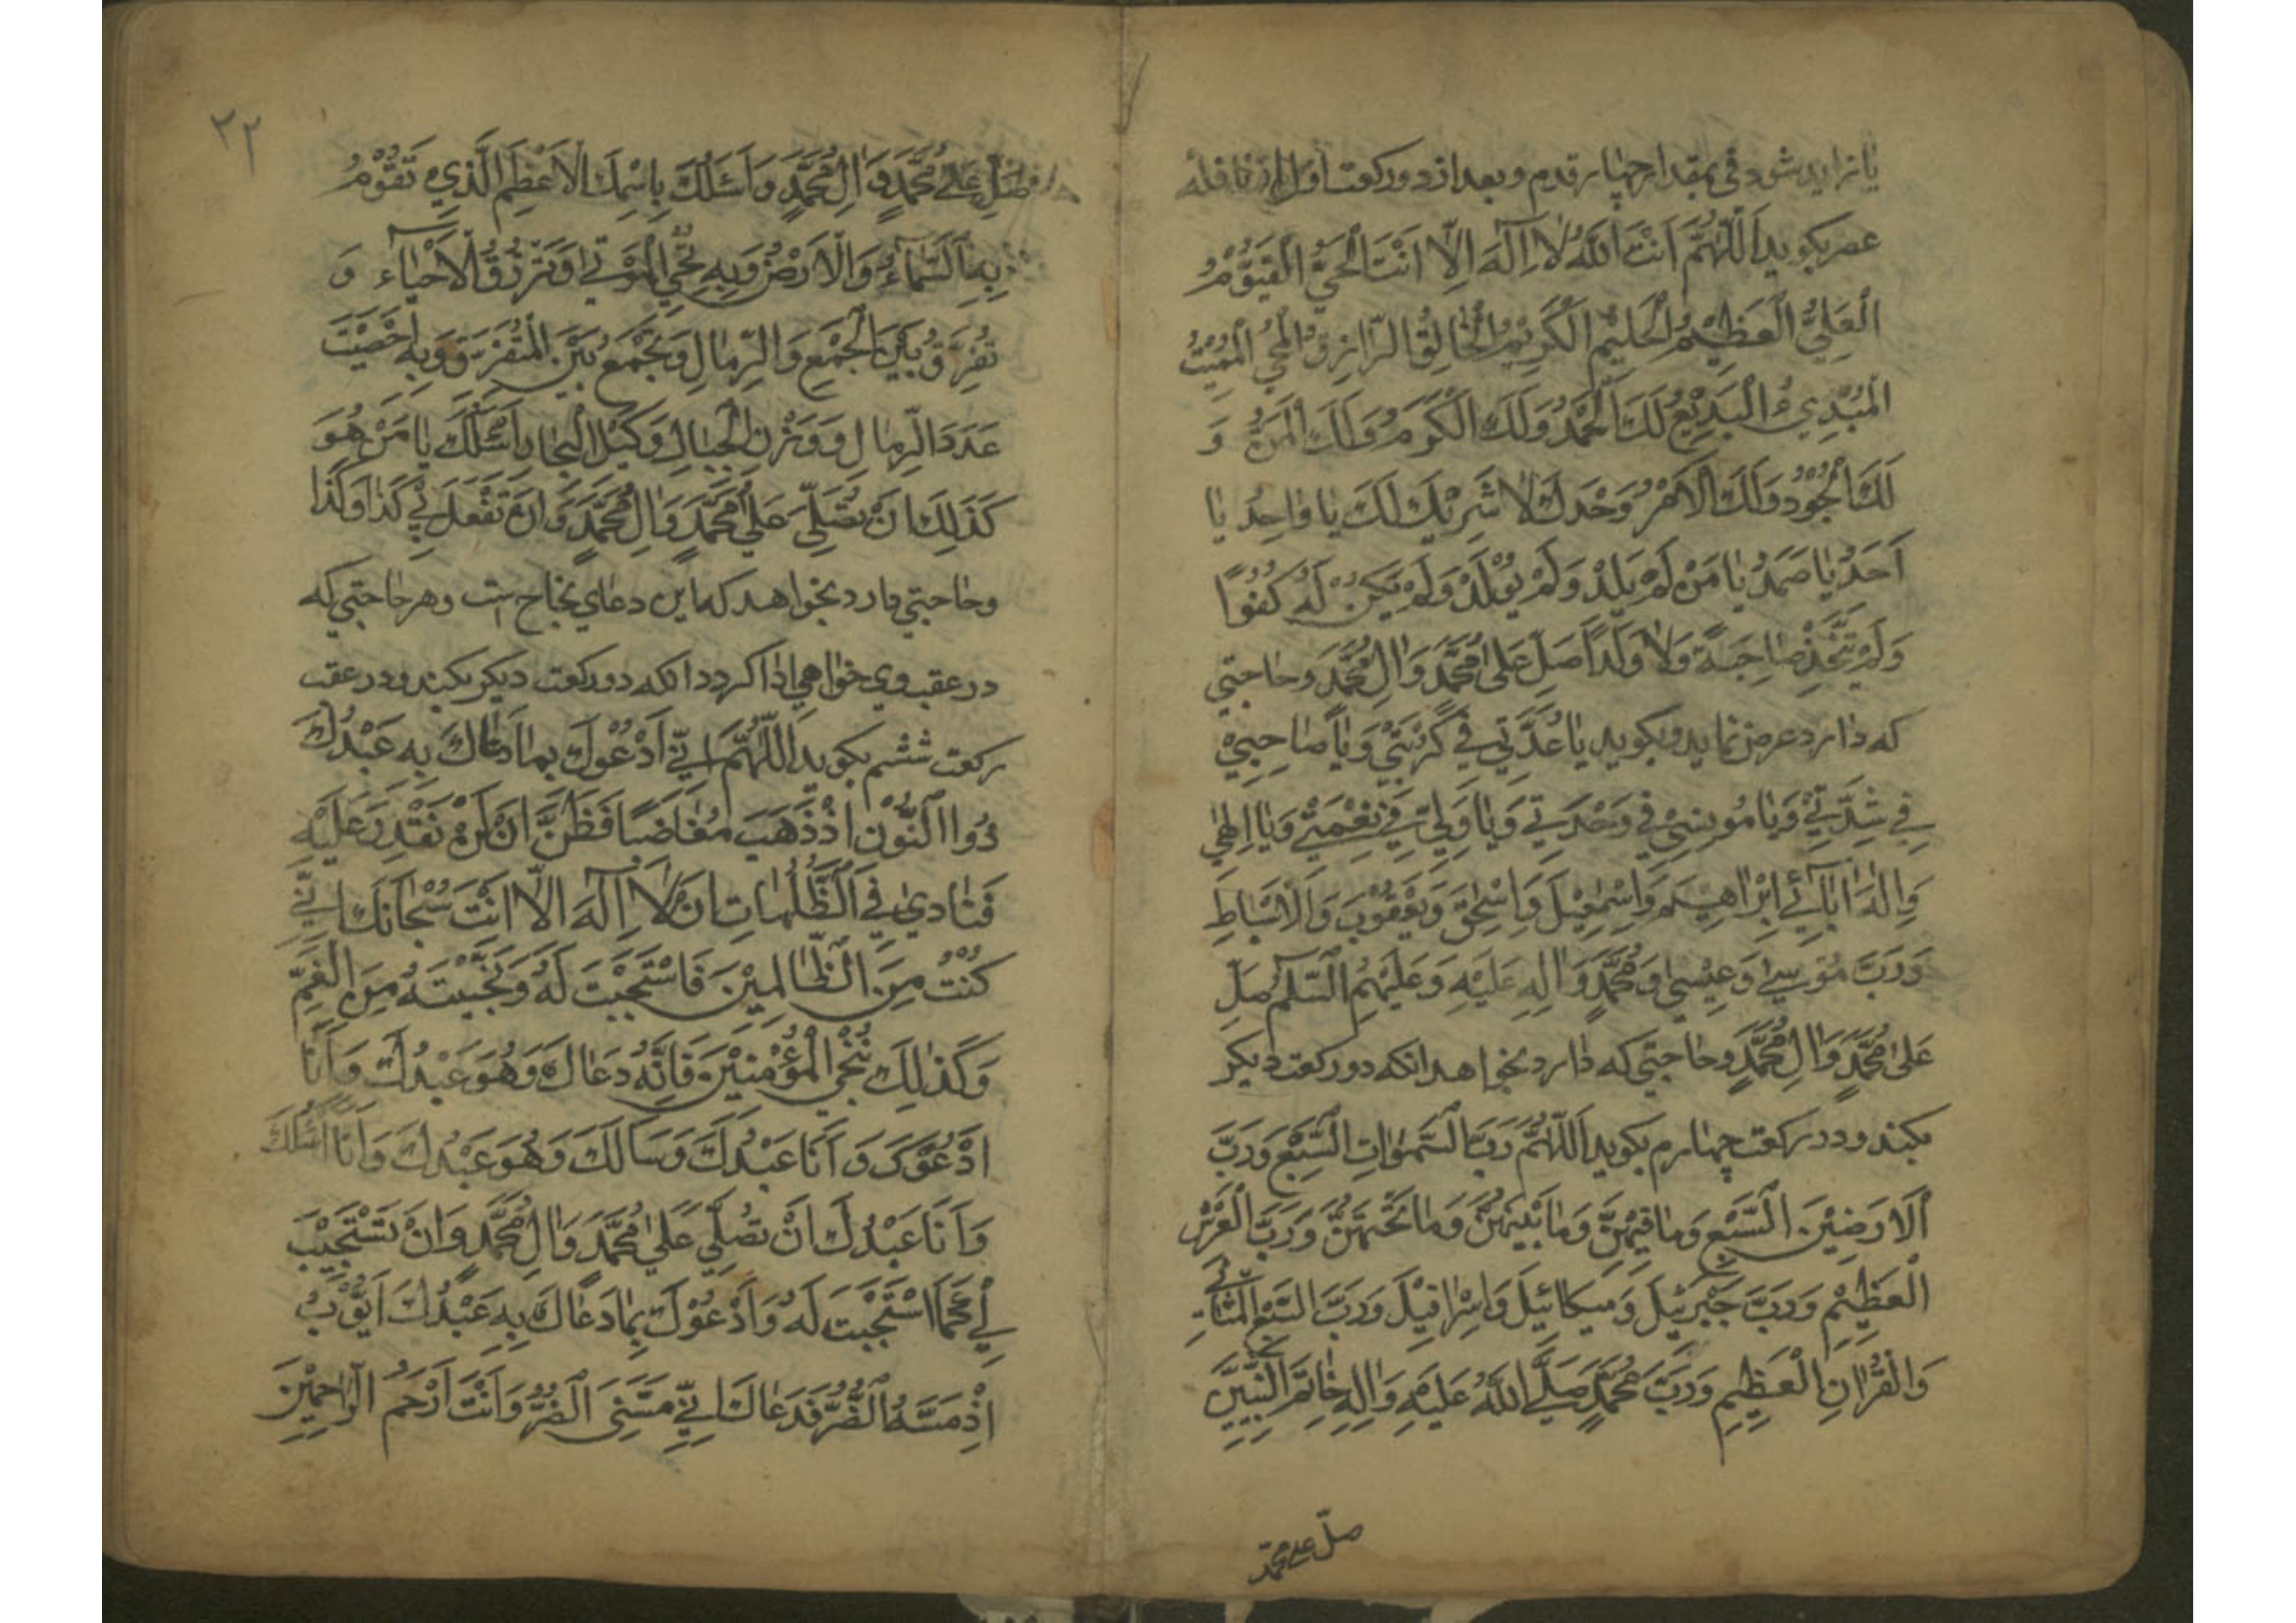 یا زاید شود فی بمقدار چهار قدم و بعد از دو رکعت اول از نافله
عصر بکوید اَللّٰهُمَّ اَنْتَ اللهُ لٰا اِلٰهَ اِلّا اَنْتَ الْحَيُّ الْقَيُّوْمُ
الْعَلِيُّ الْعَظِيْمُ الْحَلِيْمُ الْكَرِيْمُ الْخٰالِقُ الرّٰازِقُ الْمُحْيِ الْمُمِيْتُ
الْمُبْدِيءُ الْبَدِيْعُ لَكَ الْحَمْدُ وَلَكَ الْكَرَمُ وَلَكَ الْمَنُّ وَ
لَكَ الْجُوْدُ وَلَكَ الْاَمْرُ وَحْدَكَ لٰا شَرِيْكَ لَكَ يٰا وٰاحِدُ يٰا
اَحَدُ يٰا صَمَدُ يٰا مَنْ لَمْ يَلِدْ وَلَمْ يُوْلَدْ وَلَمْ يَكُنْ لَهُ كُفُوًا
وَلَمْ يَتَّخِذْ صٰاحِبَةً وَلٰا وَلَدًا صَلِّ عَلىٰ مُحَمَّدٍ وَاٰلِ مُحَمَّدٍ وحاجتی
که دارد عرض نماید و بکوید يٰا عُدَّتِي فِي كُرْبَتِيْ وَيٰا صٰاحِبِيْ
فِي شِدَّتِيْ وَيٰا مُوْنِسِيْ فِي وَحْدَتِي وَيٰا وَلِيِّ فِي نِعْمَتِيْ وَيٰا اِلٰهِي
وَاِلٰهَ اٰبٰائِي اِبْرٰاهِيْمَ وَاِسْمٰعِيْلَ وَاِسْحٰقَ وَيَعْقُوْبَ وَالْاَسْبٰاطِ
وَرَبَّ مُوْسىٰ وَعِيْسىٰ وَمُحَمَّدٍ وَاٰلِهِ عَلَيْهِ وَعَلَيْهِمُ السَّلٰمُ صَلِّ
عَلىٰ مُحَمَّدٍ وَاٰلِ مُحَمَّدٍ وحاجتی که دارد بخواهد انکه دو رکعت دیکر
بکند و در رکعت چهارم بکوید اَللّٰهُمَّ رَبَّ السَّمٰوٰاتِ السَّبْعِ وَرَبَّ
الْاَرَضِيْنَ السَّبْعِ وَمٰا فِيْهِنَّ وَمٰا بَيْنَهُنَّ وَمٰا تَحْتَهُنَّ وَرَبَّ الْعَرْشِ
الْعَظِيْمِ وَرَبَّ جَبْرَئِيْلَ وَمِيْكٰائِيْلَ وَاِسْرٰافِيْلَ وَرَبَّ السَّبْعِ الْمَثٰانِي
وَالْقُرْاٰنِ الْعَظِيْمِ وَرَبَّ مُحَمَّدٍ صَلَّى اللهُ عَلَيْهِ وَاٰلِهِ خٰاتَمِ النَّبِيِّيْنَ
صلّ علی محمّد
٢٢
صَلِّ عَلىٰ مُحَمَّدٍ وَاٰلِ مُحَمَّدٍ وَاَسْئَلُكَ بِاسْمِكَ الْاَعْظَمِ الَّذِي تَقُوْمُ
بِهِ السَّمٰاءُ وَالْاَرْضُ وَبِهِ تُحْيِ الْمَوْتىٰ وَتَرْزُقُ الْاَحْيٰاءَ وَ
تُفَرِّقُ بَيْنَ الْجَمْعِ وَالرِّمٰالِ وَتَجْمَعُ بَيْنَ الْمُتَفَرِّقِ وَبِهِ اَحْصَيْتَ
عَدَدَ الرِّمٰالِ وَوَزْنَ الْجِبٰالِ وَكَيْلَ الْبِحٰارِ اَسْئَلُكَ يٰا مَنْ هُوَ
كَذٰلِكَ اَنْ تُصَلِّيَ عَلىٰ مُحَمَّدٍ وَاٰلِ مُحَمَّدٍ وَاَنْ تَفْعَلَ بِي كَذٰا وَكَذٰا
وحاجتی دارد بخواهد که این دعای نجاح است وهر حاجتی که
در عقب وی خواهی ادا کردد انکه دو رکعت دیکر بکند و در عقب
رکعت ششم بکوید اَللّٰهُمَّ اِنِّي اَدْعُوْكَ بِمٰا دَعٰاكَ بِهِ عَبْدُكَ
ذُوا النُّوْنِ اِذْ ذَهَبَ مُغٰاضِبًا فَظَنَّ اَنْ لَنْ نَقْدِرَ عَلَيْهِ
فَنٰادىٰ فِي الظُّلُمٰاتِ اَنْ لٰا اِلٰهَ اِلّا اَنْتَ سُبْحٰانَكَ اِنِّي
كُنْتُ مِنَ الظّٰالِمِيْنَ فَاسْتَجَبْتَ لَهُ وَنَجَّيْتَهُ مِنَ الْغَمِّ
وَكَذٰلِكَ نُنْجِي الْمُؤْمِنِيْنَ فَاِنَّهُ دَعٰاكَ وَهُوَ عَبْدُكَ وَاَنَا
اَدْعُوْكَ وَ اَنَا عَبْدُكَ وَسَاَلَكَ وَهُوَ عَبْدُكَ وَاَنَا اَسْئَلُكَ
وَاَنَا عَبْدُكَ اَنْ تُصَلِّيَ عَلىٰ مُحَمَّدٍ وَاٰلِ مُحَمَّدٍ وَاَنْ تَسْتَجِيْبَ
لِي كَمَا اسْتَجَبْتَ لَهُ وَاَدْعُوْكَ بِمٰا دَعٰاكَ بِهِ عَبْدُكَ اَيُّوْبُ
اِذْ مَسَّهُ الضُّرُّ فَدَعٰاكَ اِنِّي مَسَّنِيَ الضُّرُّ وَاَنْتَ اَرْحَمُ الرّٰاحِمِيْنَ